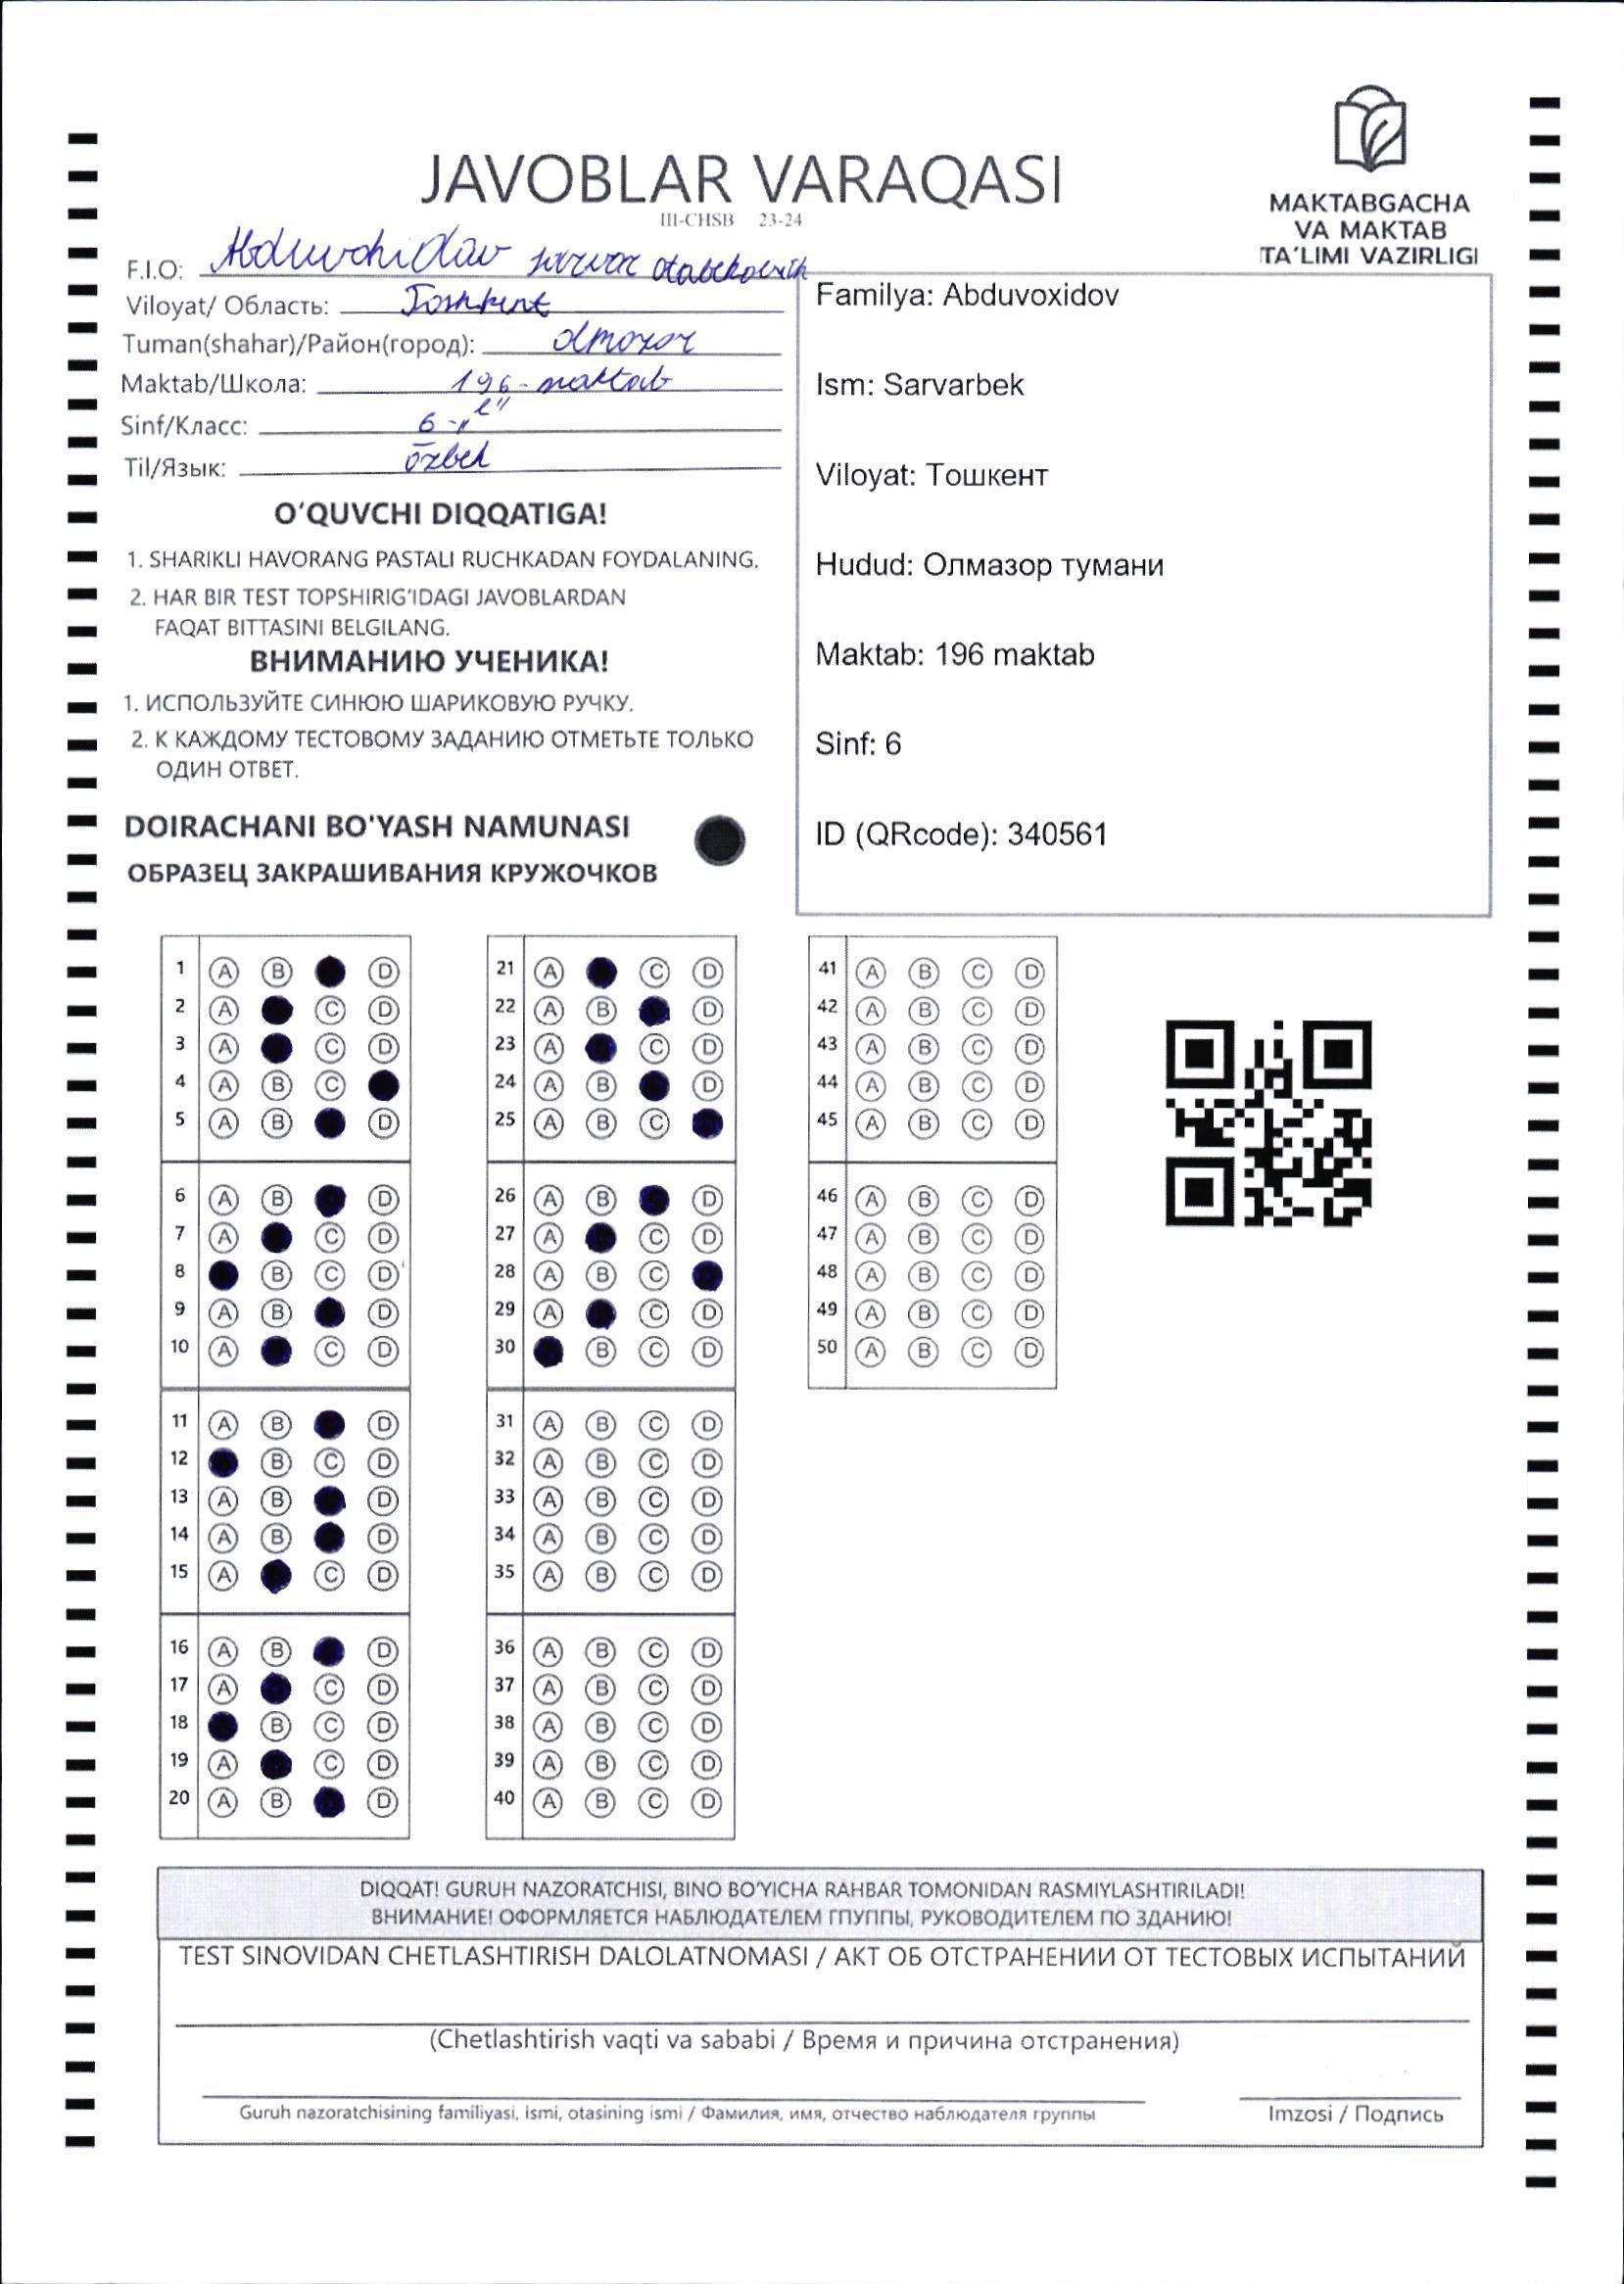 JAVOBLAR VARAQASI
III-CHSB 23-24
MAKTABGACHA
VA MAKTAB
TA'LIMI VAZIRLIGI
F.I.O: Abduvohidov sarvar otabek
Viloyat/ Область: Toshkent
Tuman(shahar)/Район(город): olmozor
Maktab/Школа: 196-maktab
Sinf/Класс: 6-„e"
Til/Язык: ōzbek
Familya: Abduvoxidov
Ism: Sarvarbek
Viloyat: Тошкент
Hudud: Олмазор тумани
Maktab: 196 maktab
Sinf: 6
ID (QRcode): 340561
O'QUVCHI DIQQATIGA!
1. SHARIKLI HAVORANG PASTALI RUCHKADAN FOYDALANING.
2. HAR BIR TEST TOPSHIRIG'IDAGI JAVOBLARDAN
FAQAT BITTASINI BELGILANG.
ВНИМАНИЮ УЧЕНИКА!
1. ИСПОЛЬЗУЙТЕ СИНЮЮ ШАРИКОВУЮ РУЧКУ.
2. К КАЖДОМУ ТЕСТОВОМУ ЗАДАНИЮ ОТМЕТЬТЕ ТОЛЬКО
ОДИН ОТВЕТ.
DOIRACHANI BO'YASH NAMUNASI
ОБРАЗЕЦ ЗАКРАШИВАНИЯ КРУЖОЧКОВ
1 A B D
2 A C D
3 A C D
4 A B C
5 A B D
6 A B D
7 A C D
8 B C D
9 A B D
10 A C D
11 A B D
12 B C D
13 A B D
14 A B D
15 A C D
16 A B D
17 A C D
18 B C D
19 A C D
20 A B D
21 A C D
22 A B D
23 A C D
24 A B D
25 A B C
26 A B D
27 A C D
28 A B C
29 A C D
30 B C D
31 A B C D
32 A B C D
33 A B C D
34 A B C D
35 A B C D
36 A B C D
37 A B C D
38 A B C D
39 A B C D
40 A B C D
41 A B C D
42 A B C D
43 A B C D
44 A B C D
45 A B C D
46 A B C D
47 A B C D
48 A B C D
49 A B C D
50 A B C D
DIQQAT! GURUH NAZORATCHISI, BINO BO'YICHA RAHBAR TOMONIDAN RASMIYLASHTIRILADI!
ВНИМАНИЕ! ОФОРМЛЯЕТСЯ НАБЛЮДАТЕЛЕМ ГПУППЫ, РУКОВОДИТЕЛЕМ ПО ЗДАНИЮ!
TEST SINOVIDAN CHETLASHTIRISH DALOLATNOMASI / АКТ ОБ ОТСТРАНЕНИИ ОТ ТЕСТОВЫХ ИСПЫТАНИЙ
(Chetlashtirish vaqti va sababi / Время и причина отстранения)
Guruh nazoratchisining familiyasi, ismi, otasining ismi / Фамилия, имя, отчество наблюдателя группы
Imzosi / Подпись